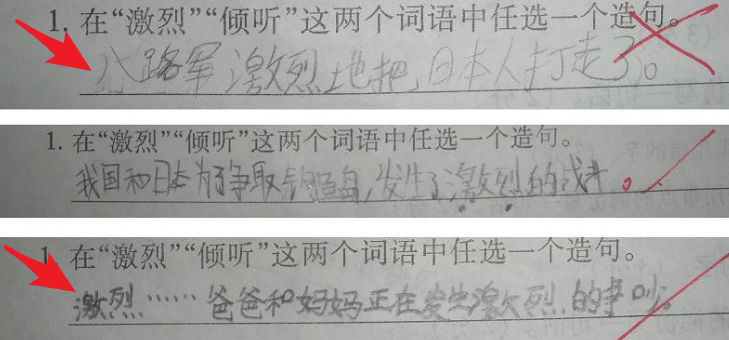 1. 在“激烈”“倾听”这两个词语中任选一个造句。
八路军激烈地把日本人打走了。
1. 在“激烈”“倾听”这两个词语中任选一个造句。
我国和日本为了争取钓鱼岛,发生了激烈的战斗。
1 在“激烈”“倾听”这两个词语中任选一个造句。
激烈……爸爸和妈妈正在发生激烈的争吵。